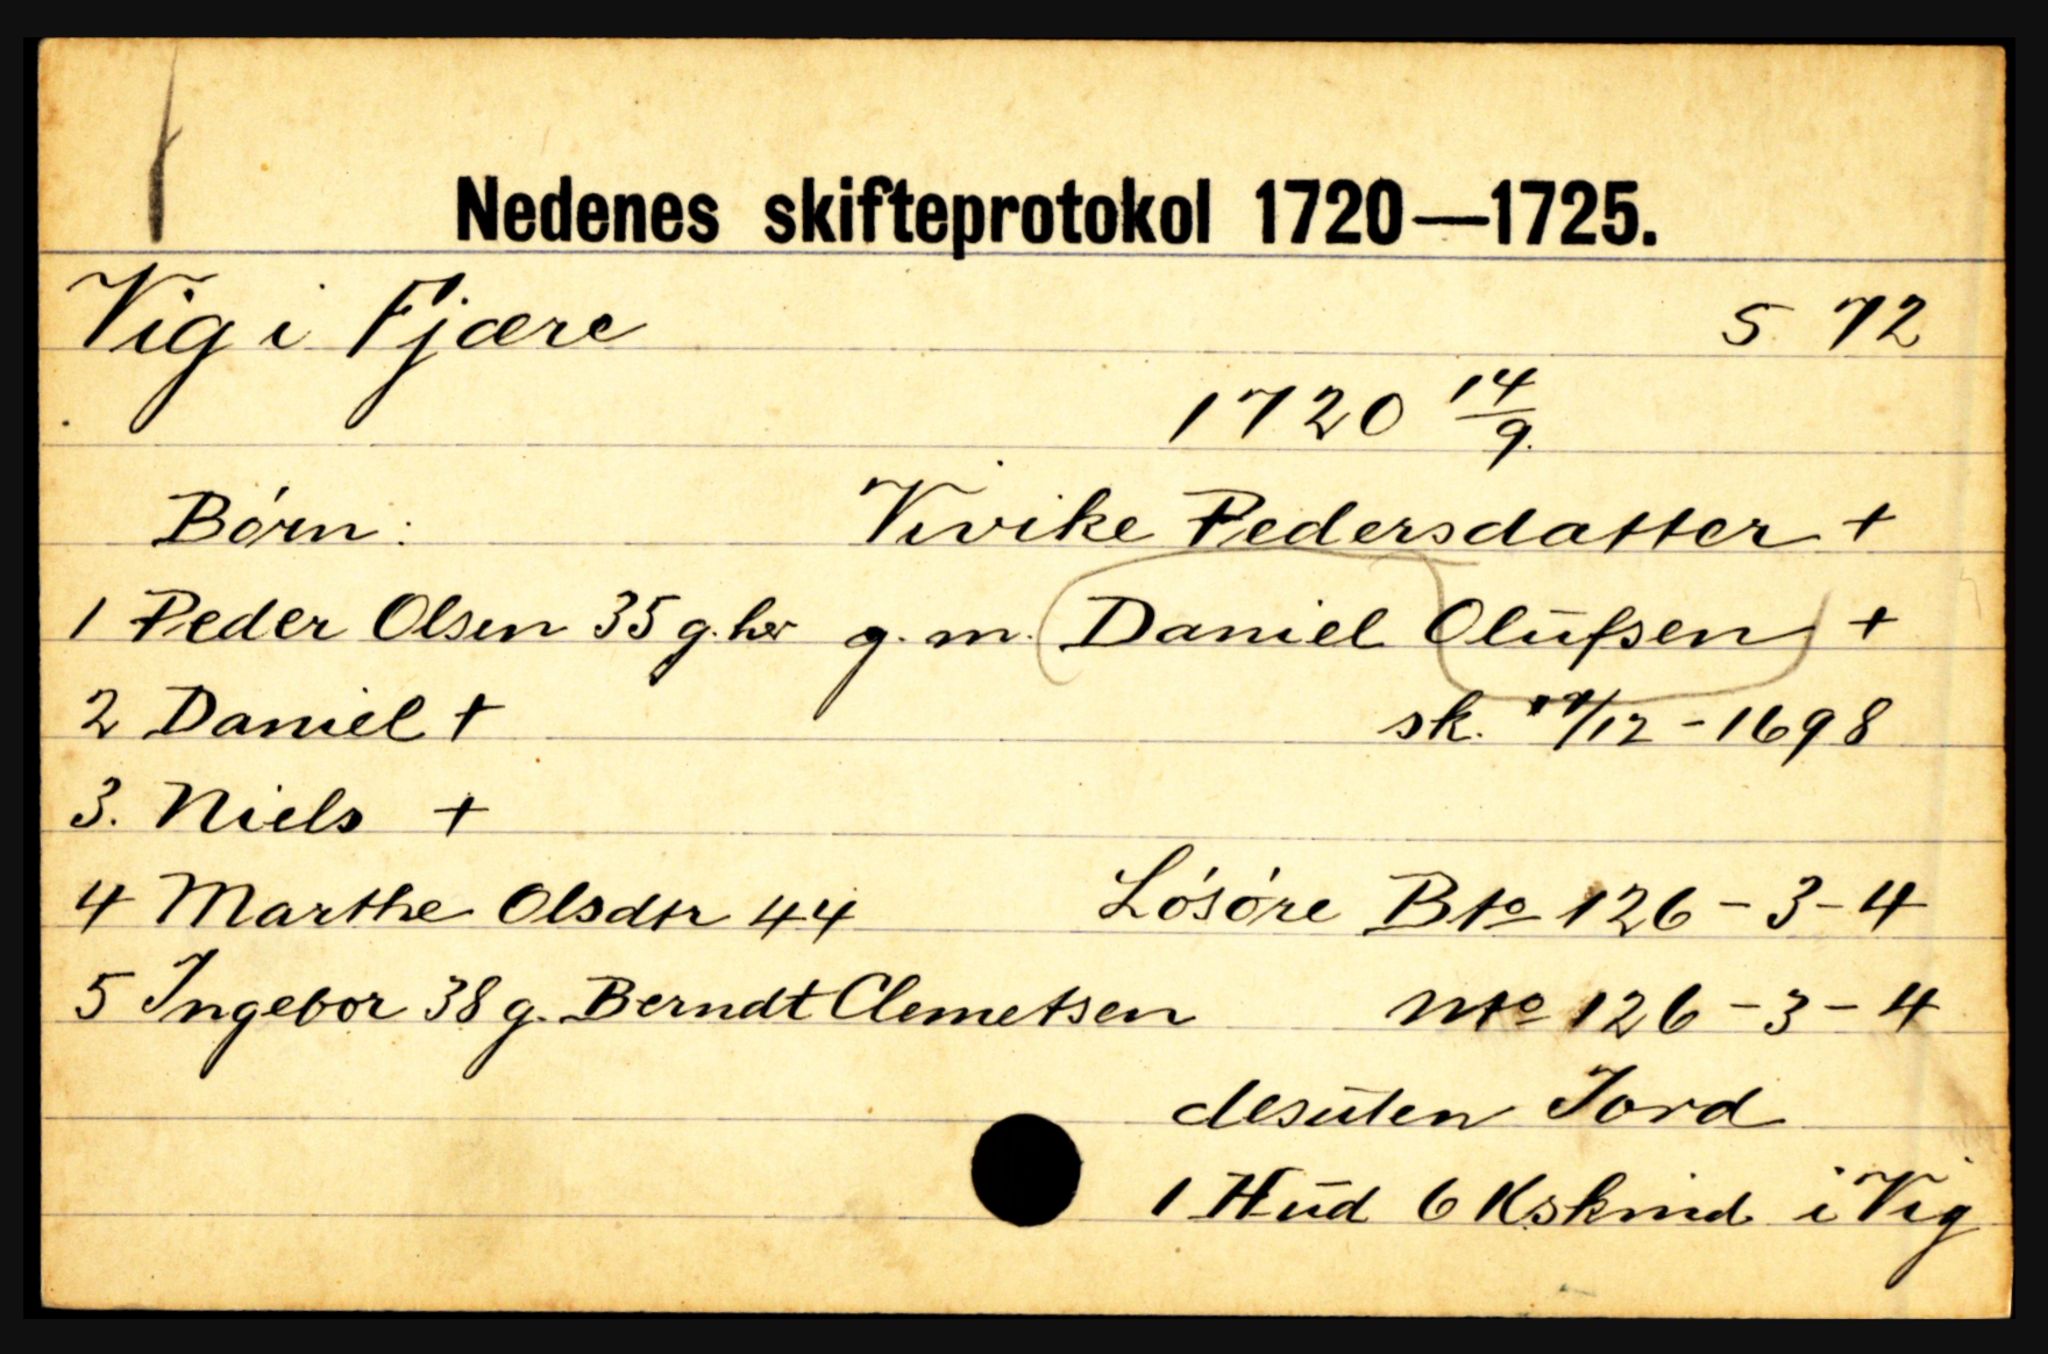 Nedenes skifteprotokol 1720—1725.
Vig i Fjære s 72
1720 14/9.
Børn: Vivike Pedersdatter +
1 Peder Olsen 35 g. her g. m. Daniel Olufsen +
2 Daniel + sk. /12 - 1698
3. Niels +
4 Marthe Olsdtr 44 Løsøre Bto 126 - 3 - 4
5 Ingebor 38 g. Berndt Clemetsen Nto 126 - 3 - 4
desuten Jord
1 Hud 6 Kskind i Vig